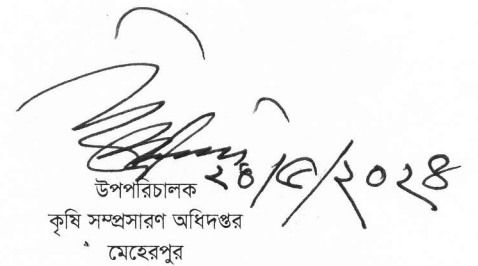 ২৪/৫/২০২৪
উপপরিচালক
কৃষি সম্প্রসারণ অধিদপ্তর
মেহেরপুর